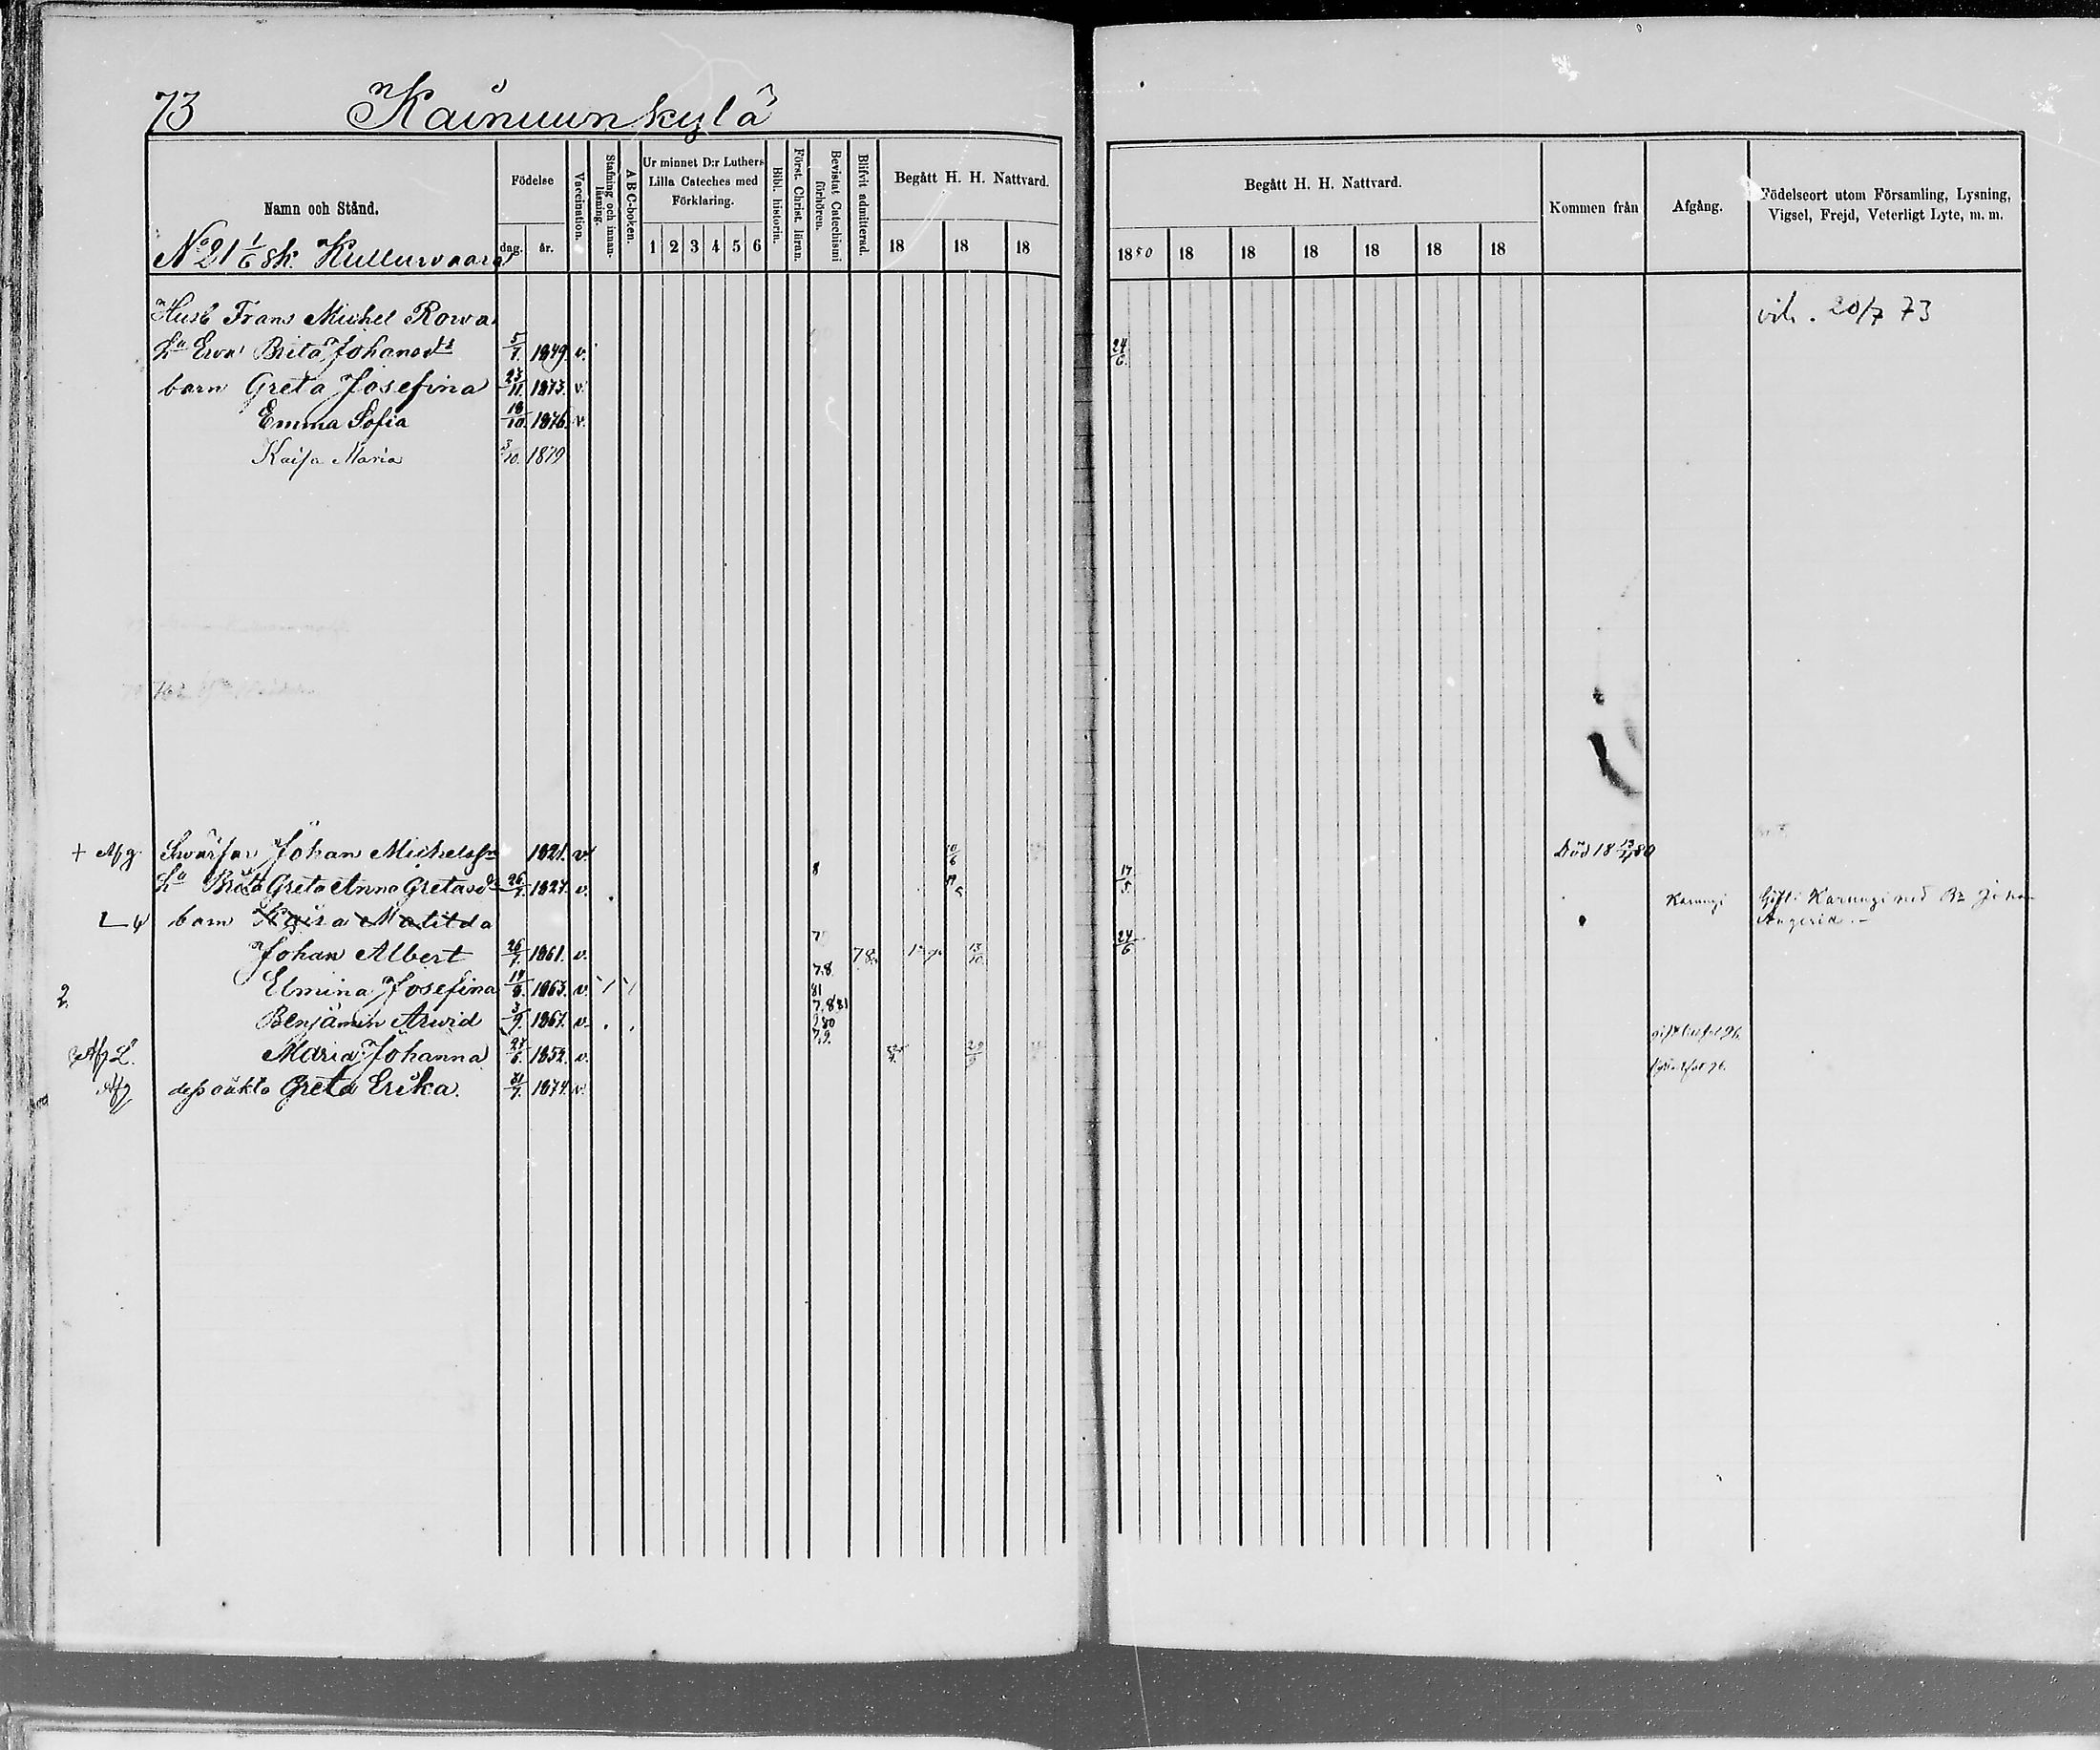 73 Kainuunkylä
Namn och Stånd.
Födelse
dag. år.
Vaccination.
Stafning och innan-läsning.
A B C-boken.
Ur minnet D:r Luthers Lilla Cateches med Förklaring.
1 2 3 4 5 6
Bibl. historin.
Först. Christ. läran.
Bevistat Catechismi förhören.
Blifvit admitterad.
Begått H. H. Nattvard.
18 18 18
Begått H. H. Nattvard.
1880 18 18 18 18 18 18
Kommen från
Afgång.
Födelseort utom Församling, Lysning, Vigsel, Frejd, Veterligt Lyte, m. m.
No 21 1/6 sk. Kulluwaara
Husb Frans Michel Rowa vih. 20/7 73
Hu Ewa Brita Johansdr 5/7. 1849. v. 24/6.
barn Greta Josefina 23/11. 1873. v.
Emma Sofia 18/10. 1876. v.
Kaisa Maria 3/10. 1879
+ Afg. Swärfar Johan Michelsson 1821. v. 10/6 Död 18 80
Hu Brita Greta Anna Gretasdr 26/7. 1827. v. 8 17/5
barn Kaisa Matilda Karungi Gift i Karungi med Johan
Johan Albert 26/7. 1861. v. 7 78. 13/10 24/6
Elmina Josefina 19/8. 1863. v. 7.8. 81
2. Benjamin Arwid 3/9. 1867. v. 7.8 81
Afg Maria Johanna 27/6. 1852. v. 7.9.
Afg dess oäkta Greta Erika. 1874. v.